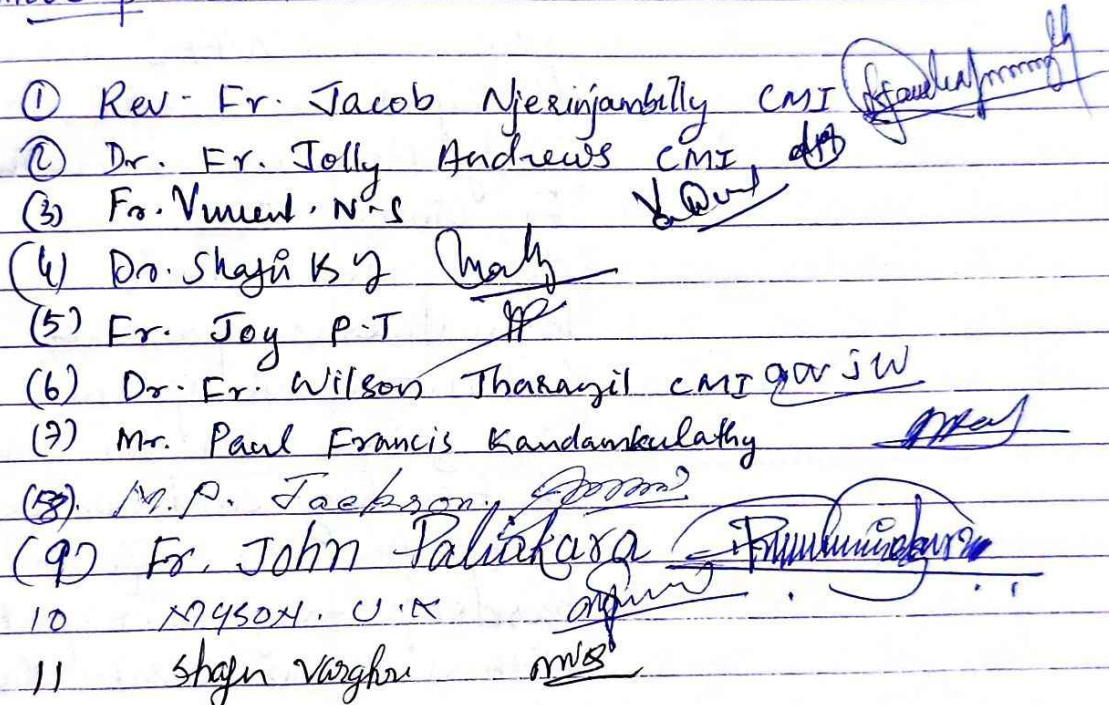 ① Rev. Fr. Jacob Njerinjambilly CMI
② Dr. Fr. Jolly Andrews CMI
(3) Fr. Vincent. N.S
(4) Dr. Shaju K Y
(5) Fr. Joy P.T
(6) Dr. Fr. Wilson Tharayil CMI
(7) Mr. Paul Francis Kandamkulathy
(8). M.P. Jackson
(9) Fr. John Paliakara
10 U.K
11 Shaju Varghese